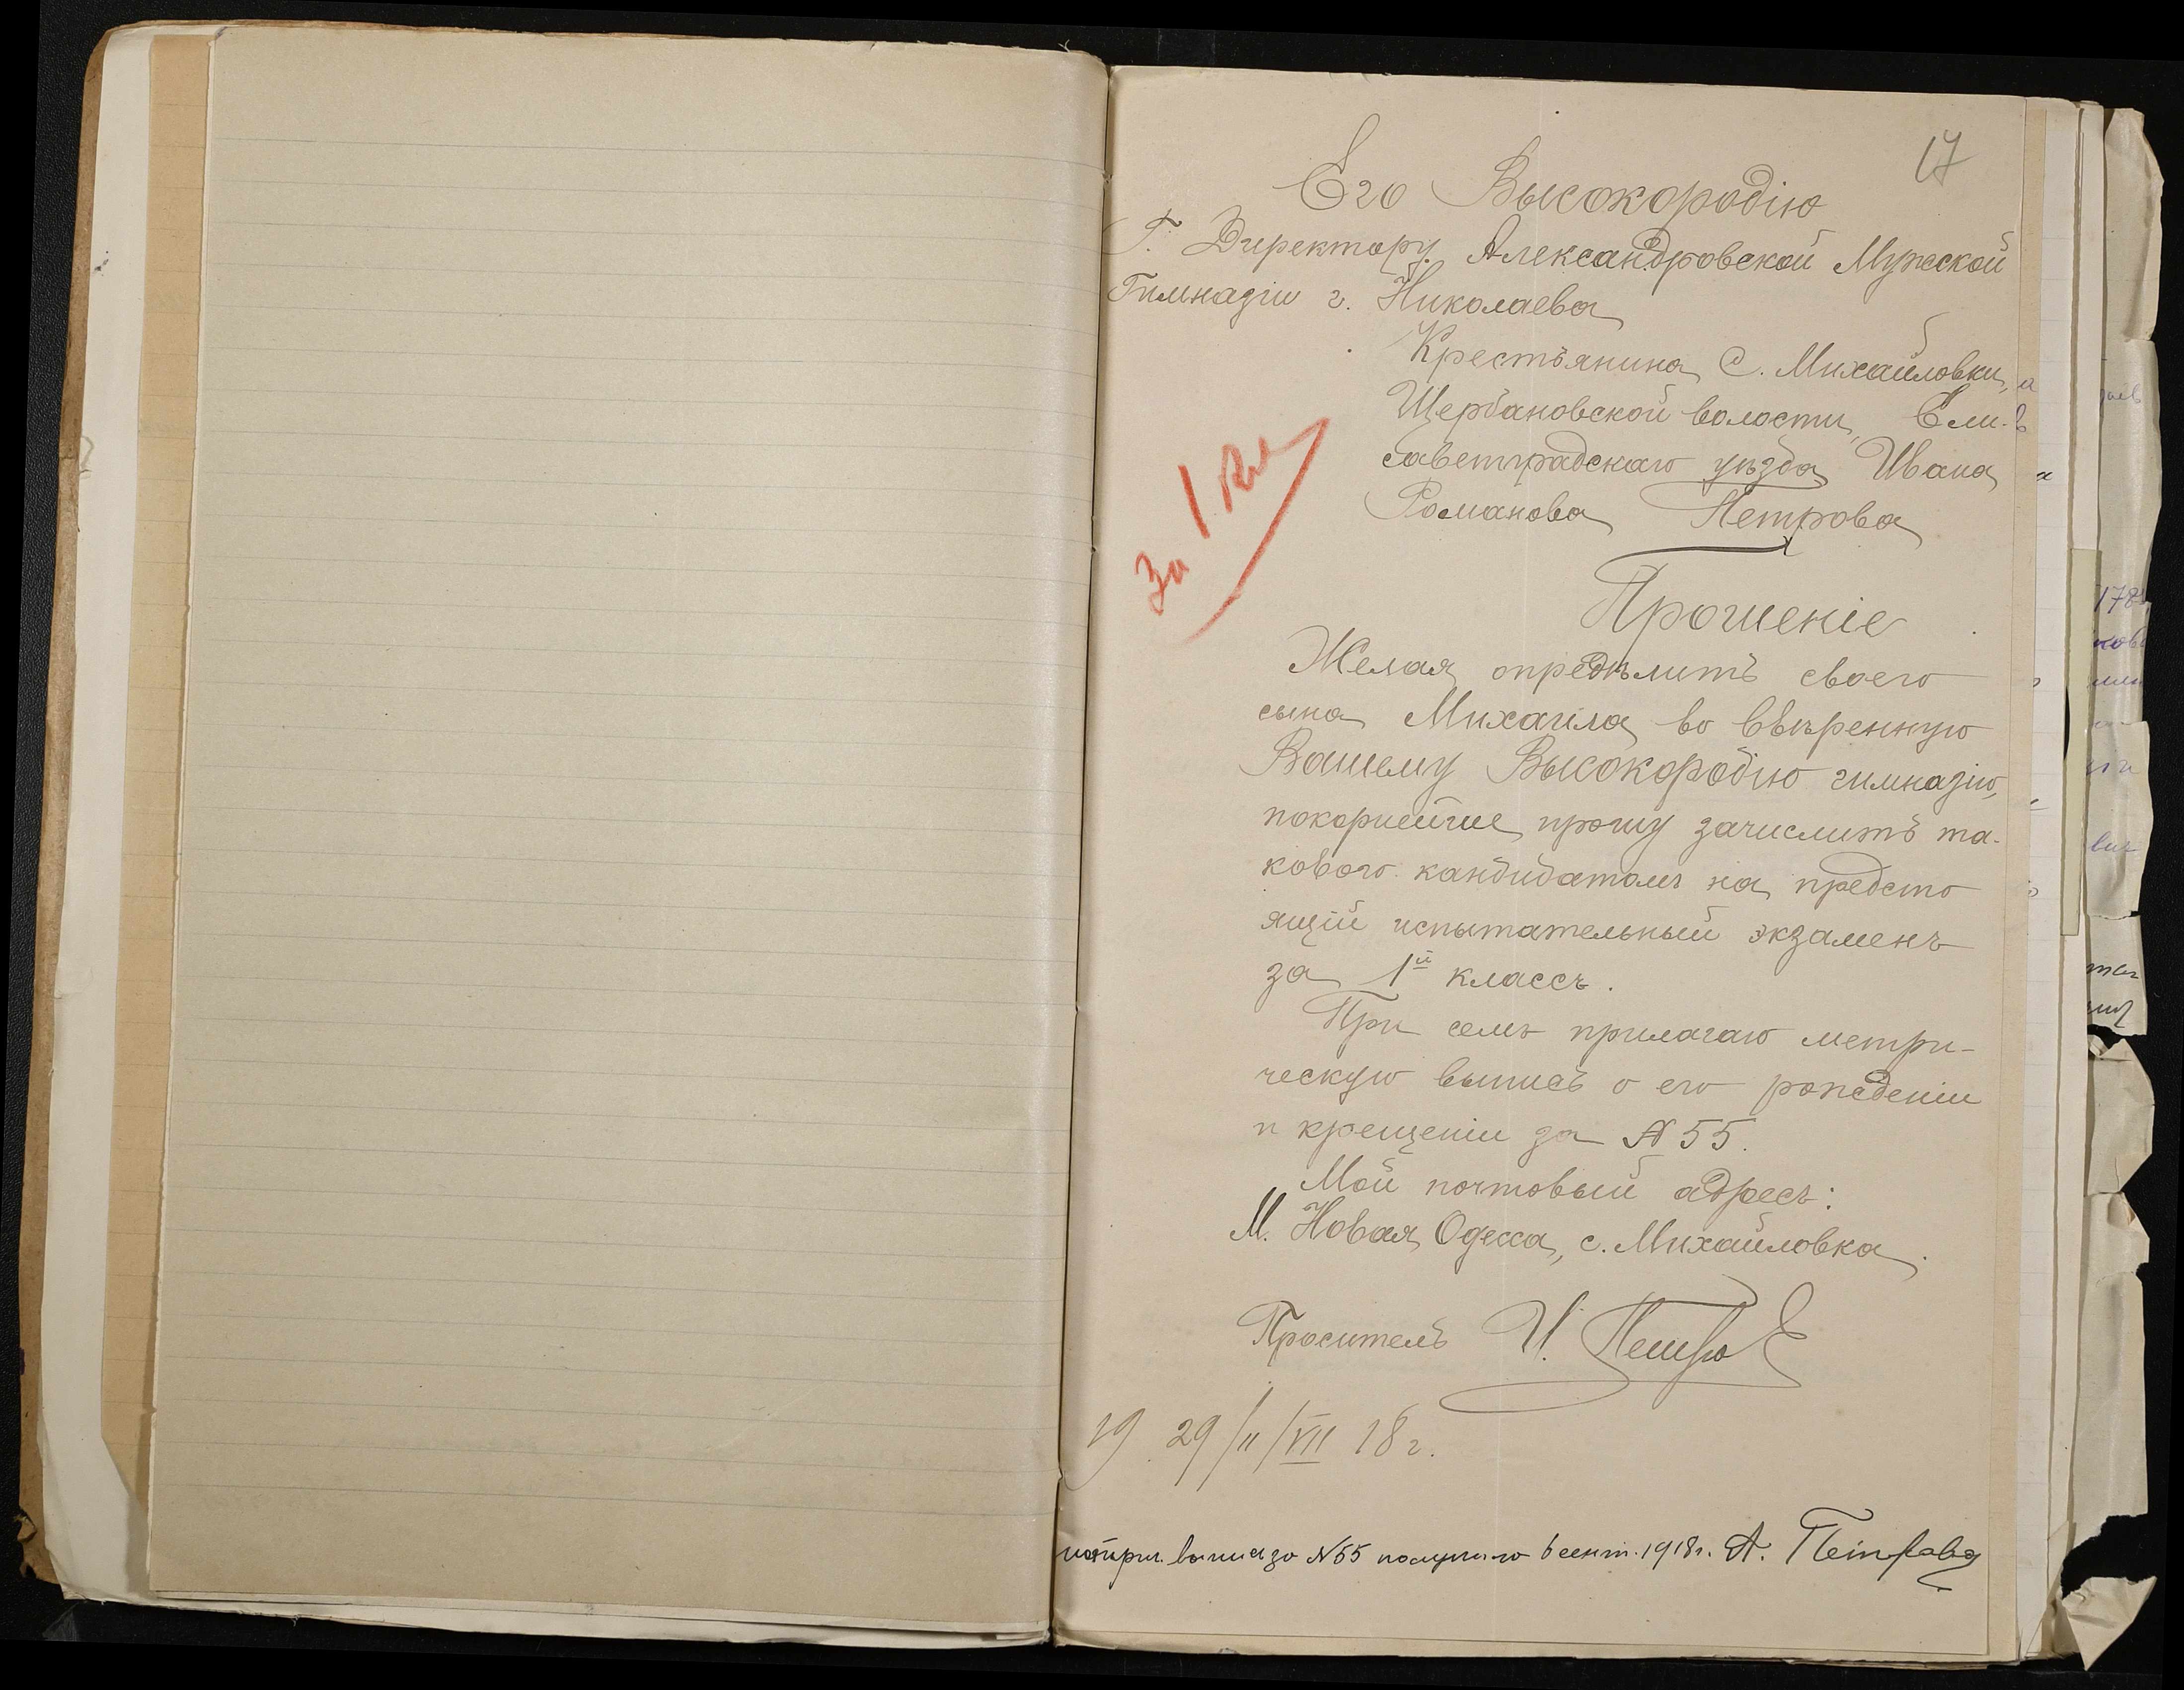 17
Его Высокородію
Г. Директору Александровской Мужской
Гимназіи г. Николаева
Крестьянина С. Михайловки,
Щербановской волости, Ели-
саветградскаго уѣзда Ивана
Романова Петрова
За 1 кл
Прошеніе
Желая опредѣлить своего
сына Михаила во ввѣренную
Вашему Высокородію гимназію,
покорнейше прошу зачислить та-
кового кандидатомъ на предсто
ящій испытательный экзаменъ
за 1й классъ.
При семъ прилагаю метри-
ческую выпись о его рожденіи
и крещеніи за № 55.
Мой почтовый адресъ:
М. Новая Одесса, с. Михайловка.
Проситель И. Петров
19 29/11/VII 18 г.
метрич. выпись за №55 получила 6 сент. 1918 г. А. Петрова